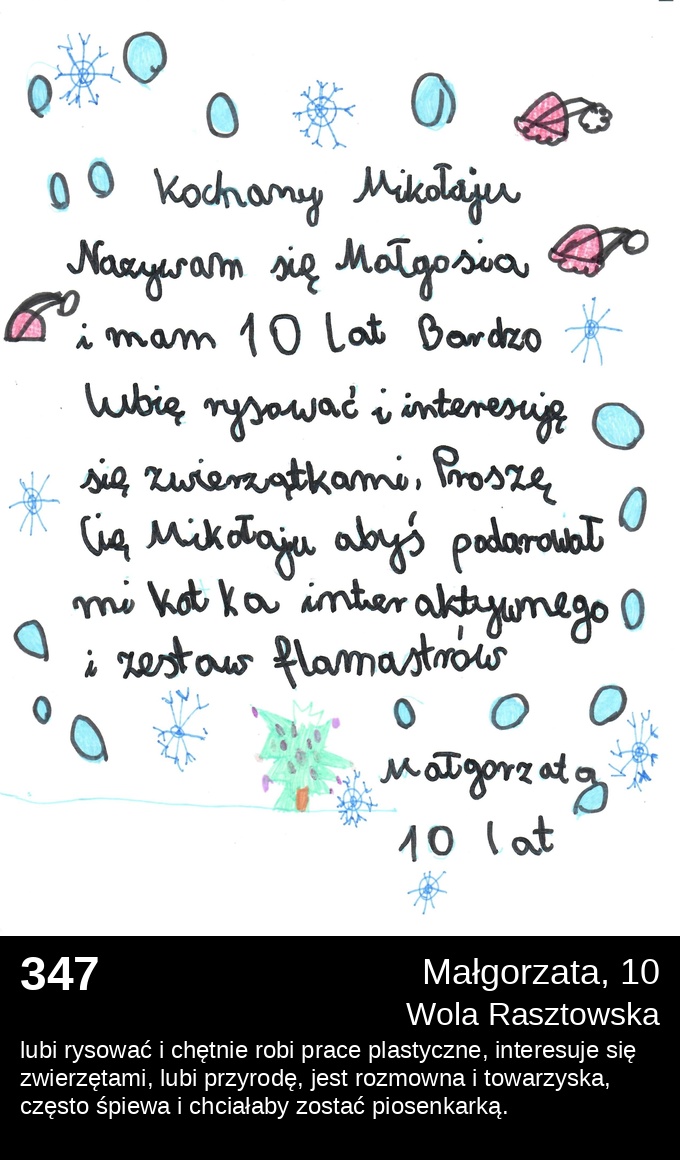 Kochany Mikołaju
Nazywam się Małgosia
i mam 10 lat Bardzo
lubię rysować i interesuję
się zwierzątkami, Proszę
Cię Mikołaju abyś podarował
mi kotka interaktywnego
i zestaw flamastrów
Małgorzata
10 lat
347
Małgorzata, 10
Wola Rasztowska
lubi rysować i chętnie robi prace plastyczne, interesuje się
zwierzętami, lubi przyrodę, jest rozmowna i towarzyska,
często śpiewa i chciałaby zostać piosenkarką.